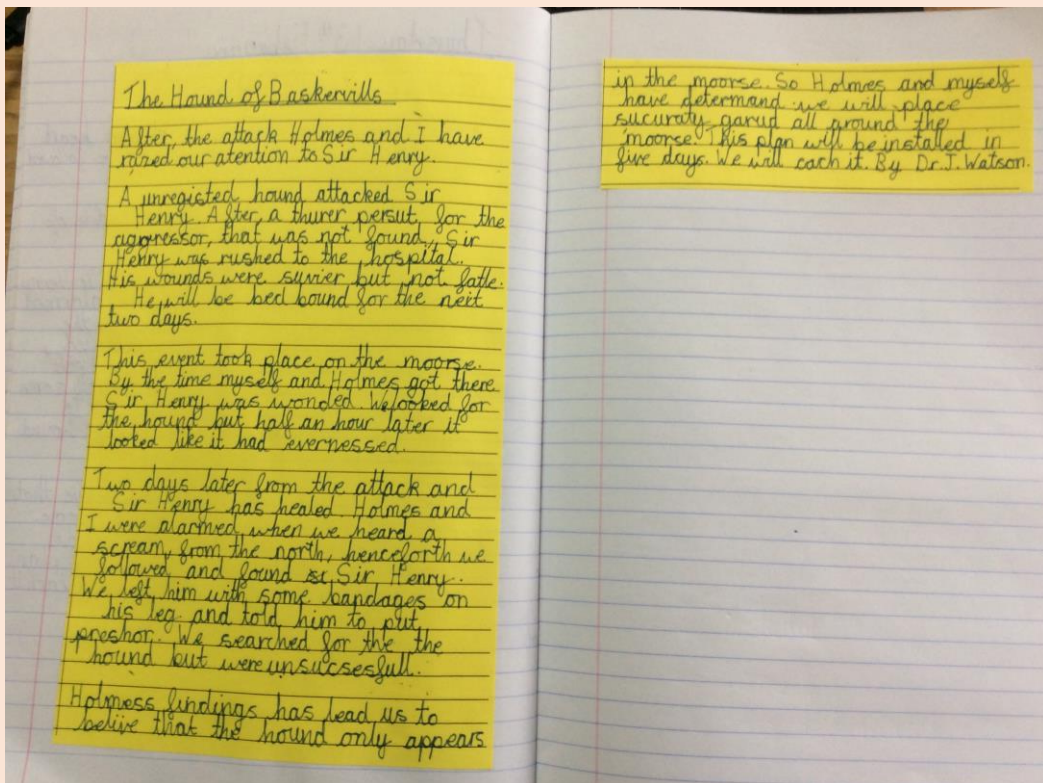 The Hound of Baskervills
After, the attack Holmes and I have
raized our atention to Sir Henry.
A unregisted hound attacked Sir
Henry. After, a thurer persut, for the
aggressor, that was not found, Sir
Henry was rushed to the hospital.
His wounds were syvier but not fatle.
He will be bed bound for the next
two days.
This event took place on the moorse.
By the time myself and Holmes got there
Sir Henry was wonded. We looked for
the hound but half an hour later it
looked like it had evernessed.
Two days later from the attack and
Sir Henry has healed. Holmes and
I were alarmed when we heard a
scream, from the north, henceforth we
followed and found Sir Henry.
We left him with some bandages on
his leg and told him to put
preshor. We searched for the the
hound but were unsucsesfull.
Holmess findings has lead us to
belive that the hound only appears
in the moorse. So Holmes and myself
have determand we will place
sucuraty garud all around the
moorse. This plan will be instaled in
five days. We will cach it. By Dr. J. Watson.